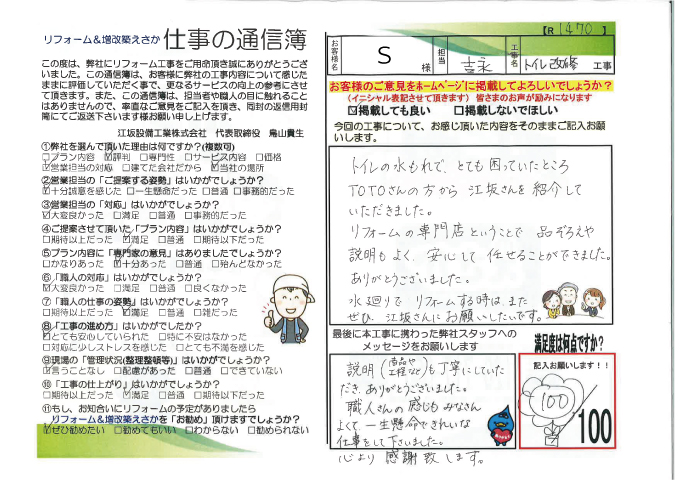 リフォーム＆増改築えさか 仕事の通信簿
この度は、弊社にリフォーム工事をご用命頂き誠にありがとうござ
いました。この通信簿は、お客様に弊社の工事内容について感じた
ままに評価していただく事で、更なるサービスの向上の参考にさせ
て頂きます。また、この通信簿は、担当者や職人の目に触れること
はありませんので、率直なご意見をご記入を頂き、同封の返信用封
筒にてご返送下さいます様お願い申し上げます。
江坂設備工業株式会社 代表取締役 鳥山貴生
①弊社を選んで頂いた理由は何ですか?(複数可)
□プラン内容 ☑評判 □専門性 □サービス内容 □価格
☑営業担当の対応 □建てた会社だから ☑当社の場所
②営業担当の「ご提案する姿勢」はいかがでしょうか?
☑十分誠意を感じた □一生懸命だった □普通 □事務的だった
③営業担当の「対応」はいかがでしょうか?
☑大変良かった □満足 □普通 □事務的だった
④ご提案させて頂いた「プラン内容」はいかがでしょうか?
□期待以上だった ☑満足 □普通 □期待以下だった
⑤プラン内容に「専門家の意見」はありましたでしょうか?
□かなりあった ☑十分あった □普通 □殆んどなかった
⑥「職人の対応」はいかがでしょうか?
☑大変良かった □満足 □普通 □良くなかった
⑦「職人の仕事の姿勢」はいかがでしょうか?
□期待以上だった ☑満足 □普通 □雑だった
⑧「工事の進め方」はいかがでしたか?
☑とても安心していられた □特に不安はなかった
□対応に少しストレスを感じた □とても不満を感じた
⑨現場の「管理状況(整理整頓等)」はいかがでしょうか?
☑言うことなし □配慮があった □普通 □できていない
⑩「工事の仕上がり」はいかがでしょうか?
□期待以上だった ☑満足 □普通 □期待以下だった
⑪もし、お知合いにリフォームの予定がありましたら
リフォーム&増改築えさかを「お勧め」頂けますでしょうか?
☑ぜひ勧めたい □勧めてもいい □わからない □勧められない
【R 1470 】
お客様名 S 様 担当 吉永 工事名 トイレ改修 工事
お客様のご意見をホームページに掲載してよろしいでしょうか?
(イニシャル表記させて頂きます) 皆さまのお声が励みになります
☑掲載しても良い □掲載しないでほしい
今回の工事について、お感じ頂いた内容をそのままご記入お願
いします。
トイレの水もれで、とても困っていたところ
TOTOさんの方から 江坂さんを紹介して
いただきました。
リフォームの専門店ということで 品ぞろえや
説明もよく、安心して任せることができました。
ありがとうございました。
水廻りで リフォームする時は、また
ぜひ、江坂さんにお願いしたいです。
最後に本工事に携わった弊社スタッフへの
メッセージをお願いします
説明(商品や工程など)も丁寧にしていた
だき、ありがとうございました。
職人さんの感じも みなさん
よくて、一生懸命できれいな
仕事をして下さいました。
心より 感謝致します。
満足度は何点ですか?
記入お願いします!!
100
100